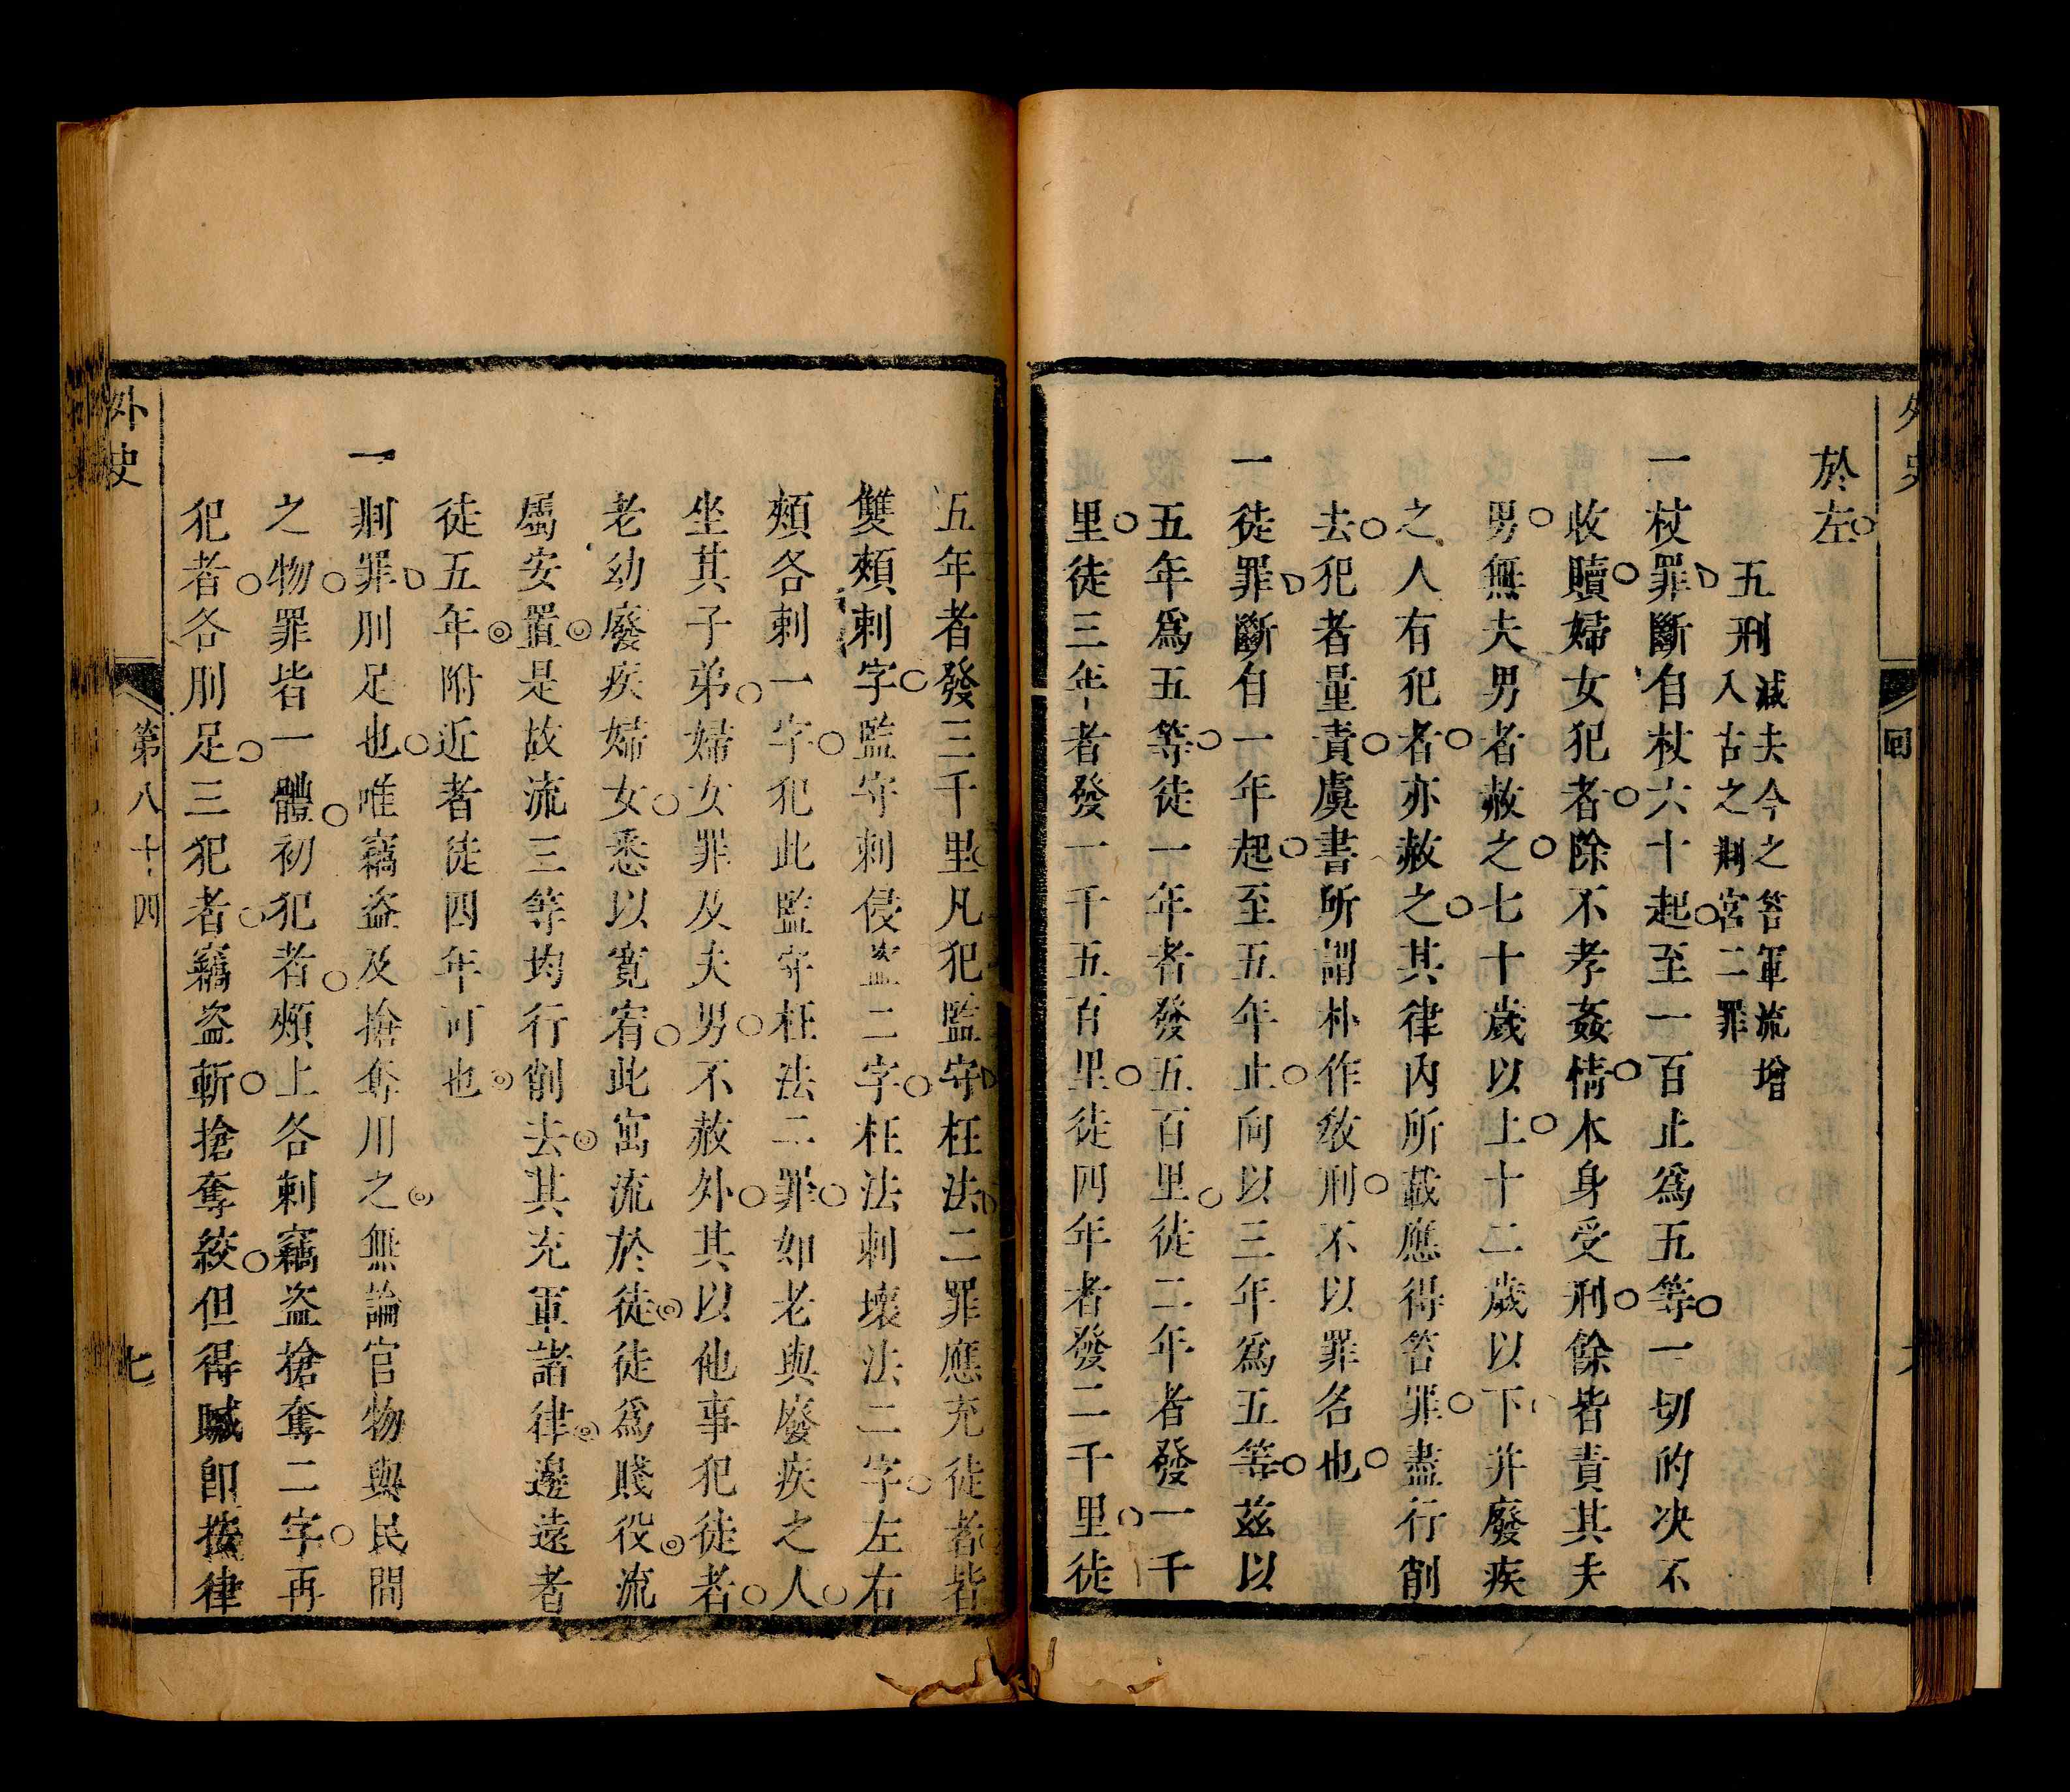 於左
五刑減去今之笞軍流增
入古之剕宮二罪
一杖罪斷自杖六十起至一百止爲五等一切的決不
收贖婦女犯者除不孝姦情本身受刑餘皆責其夫
男無夫男者赦之七十歲以上十二歲以下并廢疾
之人有犯者亦赦之其律內所載應得笞罪盡行削
去犯者量責虞書所謂朴作敎刑不以罪名也
一徒罪斷自一年起至五年止向以三年爲五等茲以
五年爲五等徒一年者發五百里徒二年者發一千
里徒三年者發一千五百里徒四年者發二千里徒
五年者發三千里凡犯監守枉法二罪應充徒者皆
雙頰刺字監守刺侵盜二字枉法刺壞法二字左右
頰各刺一字犯此監守枉法二罪如老與廢疾之人
坐其子弟婦女罪及夫男不赦外其以他事犯徒者
老幼廢疾婦女悉以寬宥此寓流於徒徒爲賤役流
屬安置是故流三等均行削去其充軍諸律邊遠者
徒五年附近者徒四年可也
一剕罪刖足也唯竊盜及搶奪用之無論官物與民間
之物罪皆一體初犯者頰上各刺竊盜搶奪二字再
犯者各刖足三犯者竊盜斬搶奪絞但得贓即按律
外史
第八十四
七